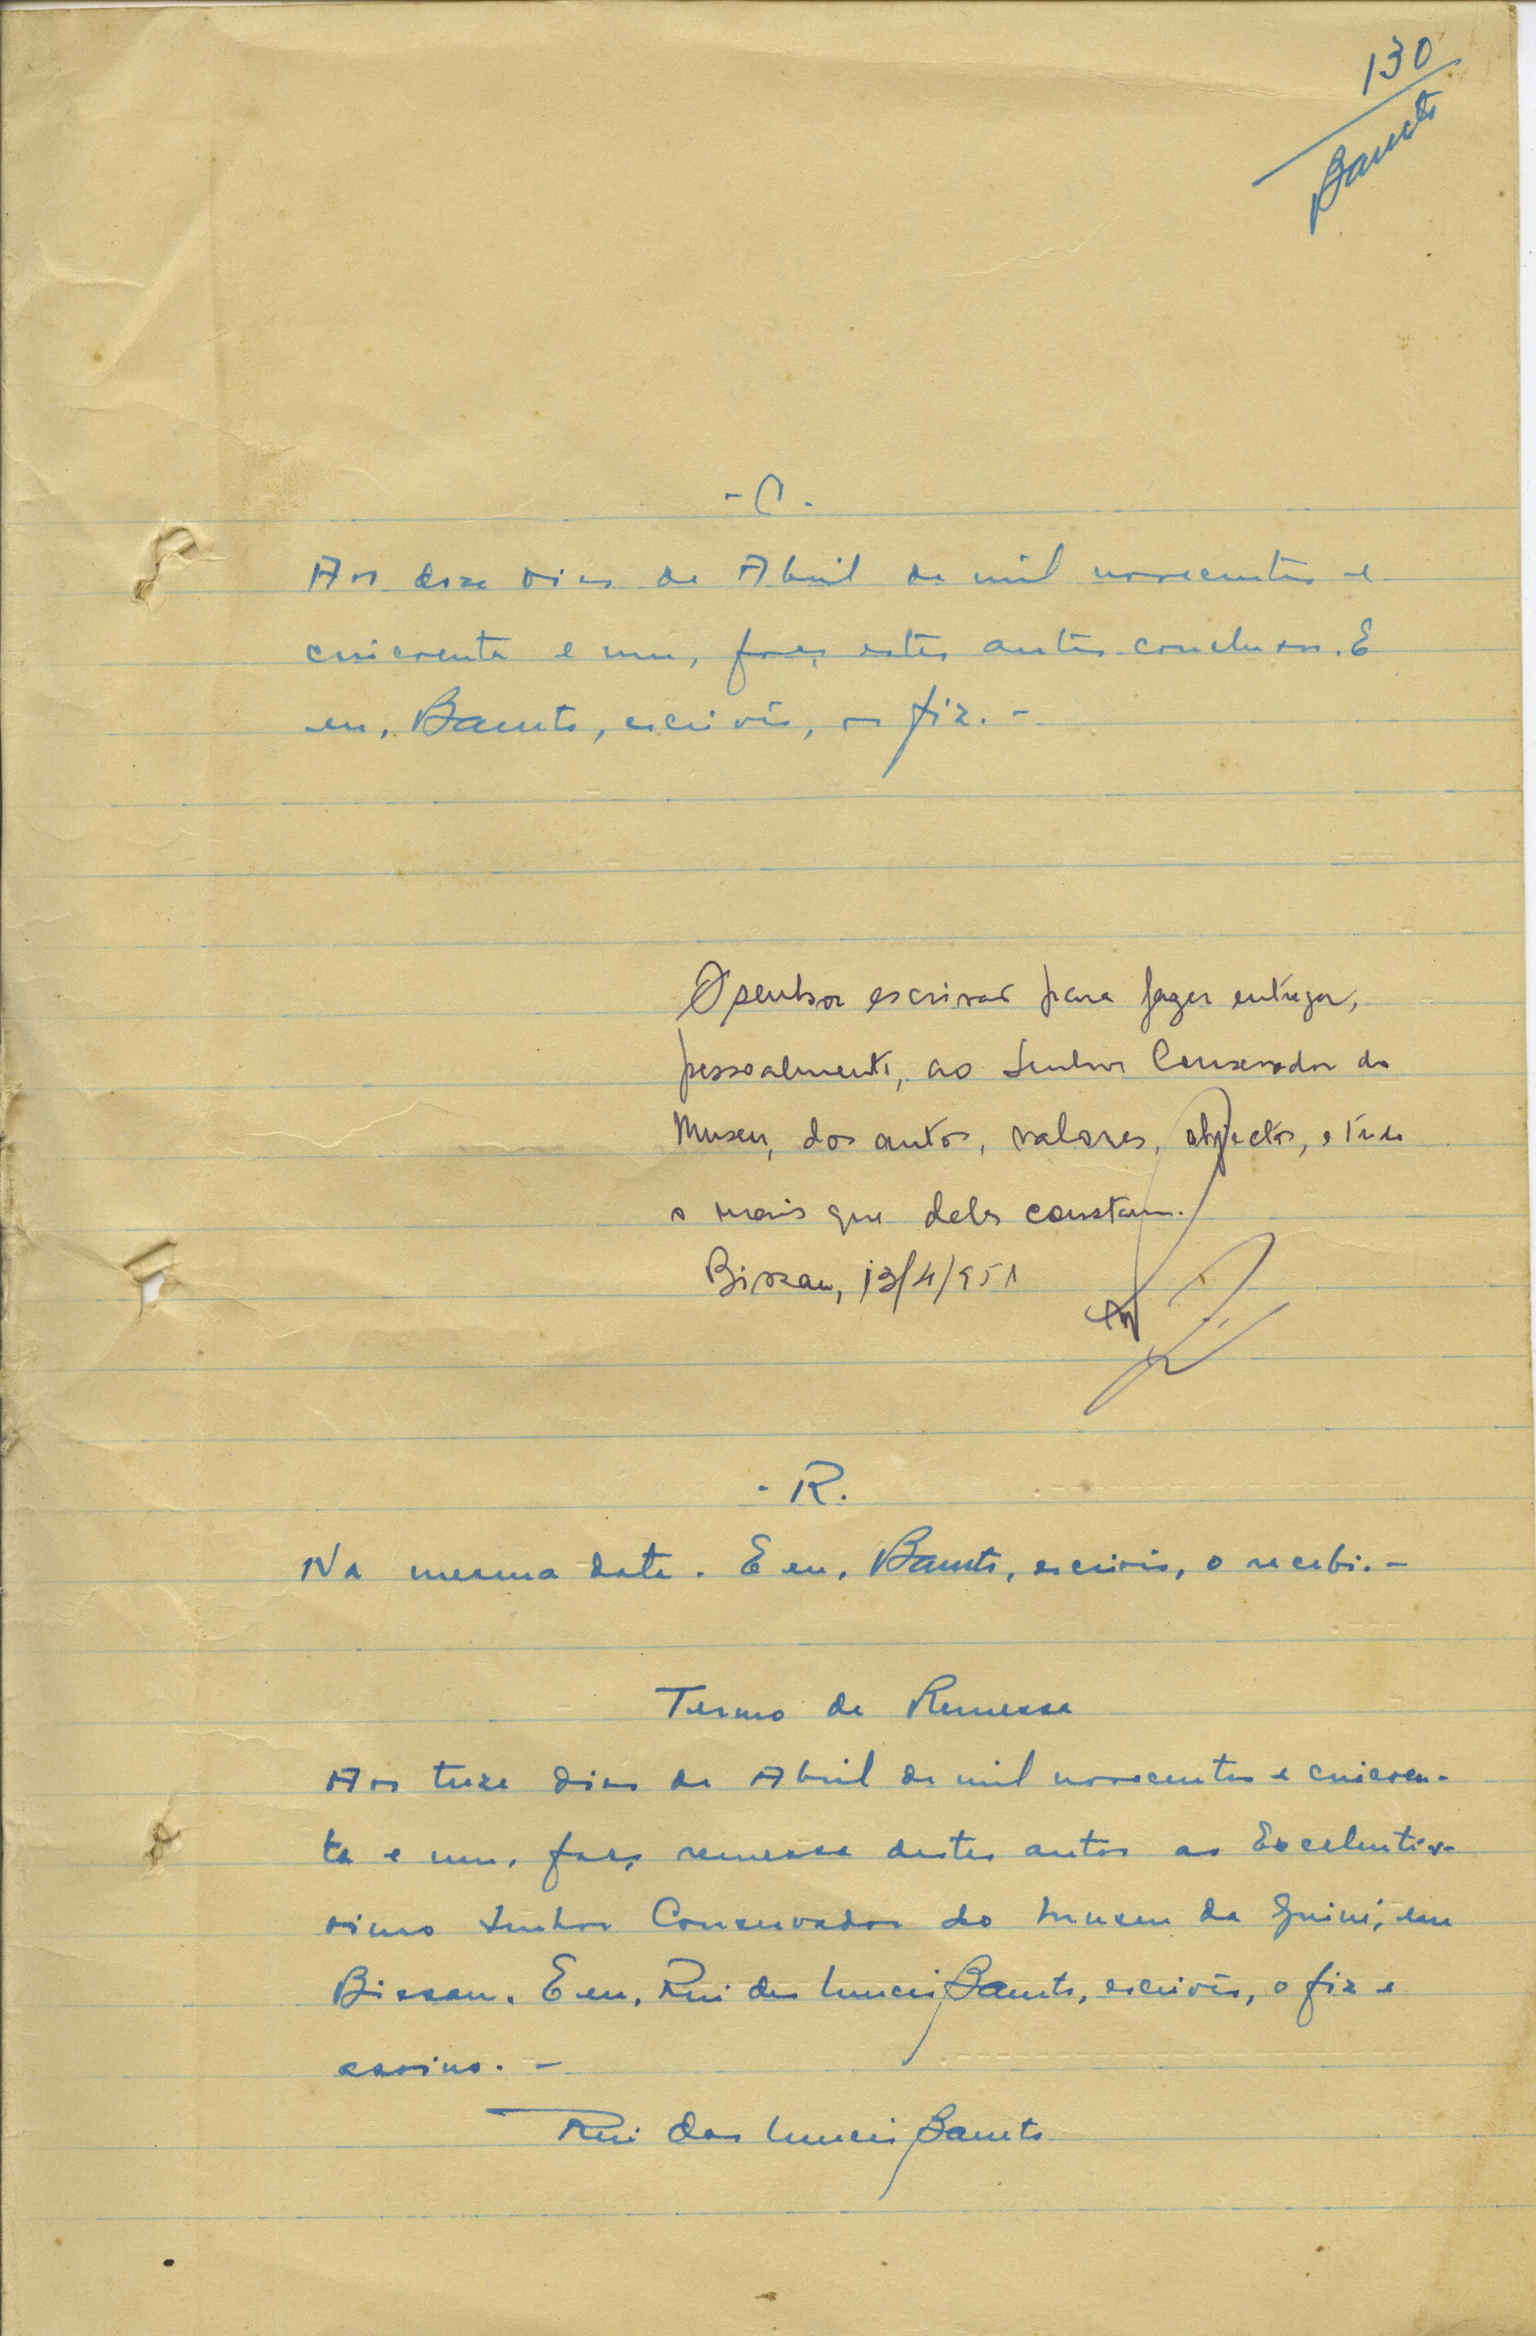 130
Barreto
- C.
Aos doze dias de Abril de mil novecentos e
cincoenta e um, faço estes autos conclusos. E
eu, Barreto, escrivão, os fiz. -
O senhor escrivão para fazer entrega,
pessoalmente, ao Senhor Conservador do
Museu, dos autos, valores, objectos, e tudo
o mais que deles constam.
Bissau, 13/4/951
- R.
Na mesma data. E eu, Barreto, escrivão, o recebi. -
Termo de Remessa
Aos treze dias de Abril de mil novecentos e cincoen-
ta e um, faço remessa destes autos ao Excelentis-
simo Senhor Conservador do Museu da Guiné, em
Bissau. E eu, Rui das Barreto, escrivão, o fiz e
assino. -
Rui das Barreto